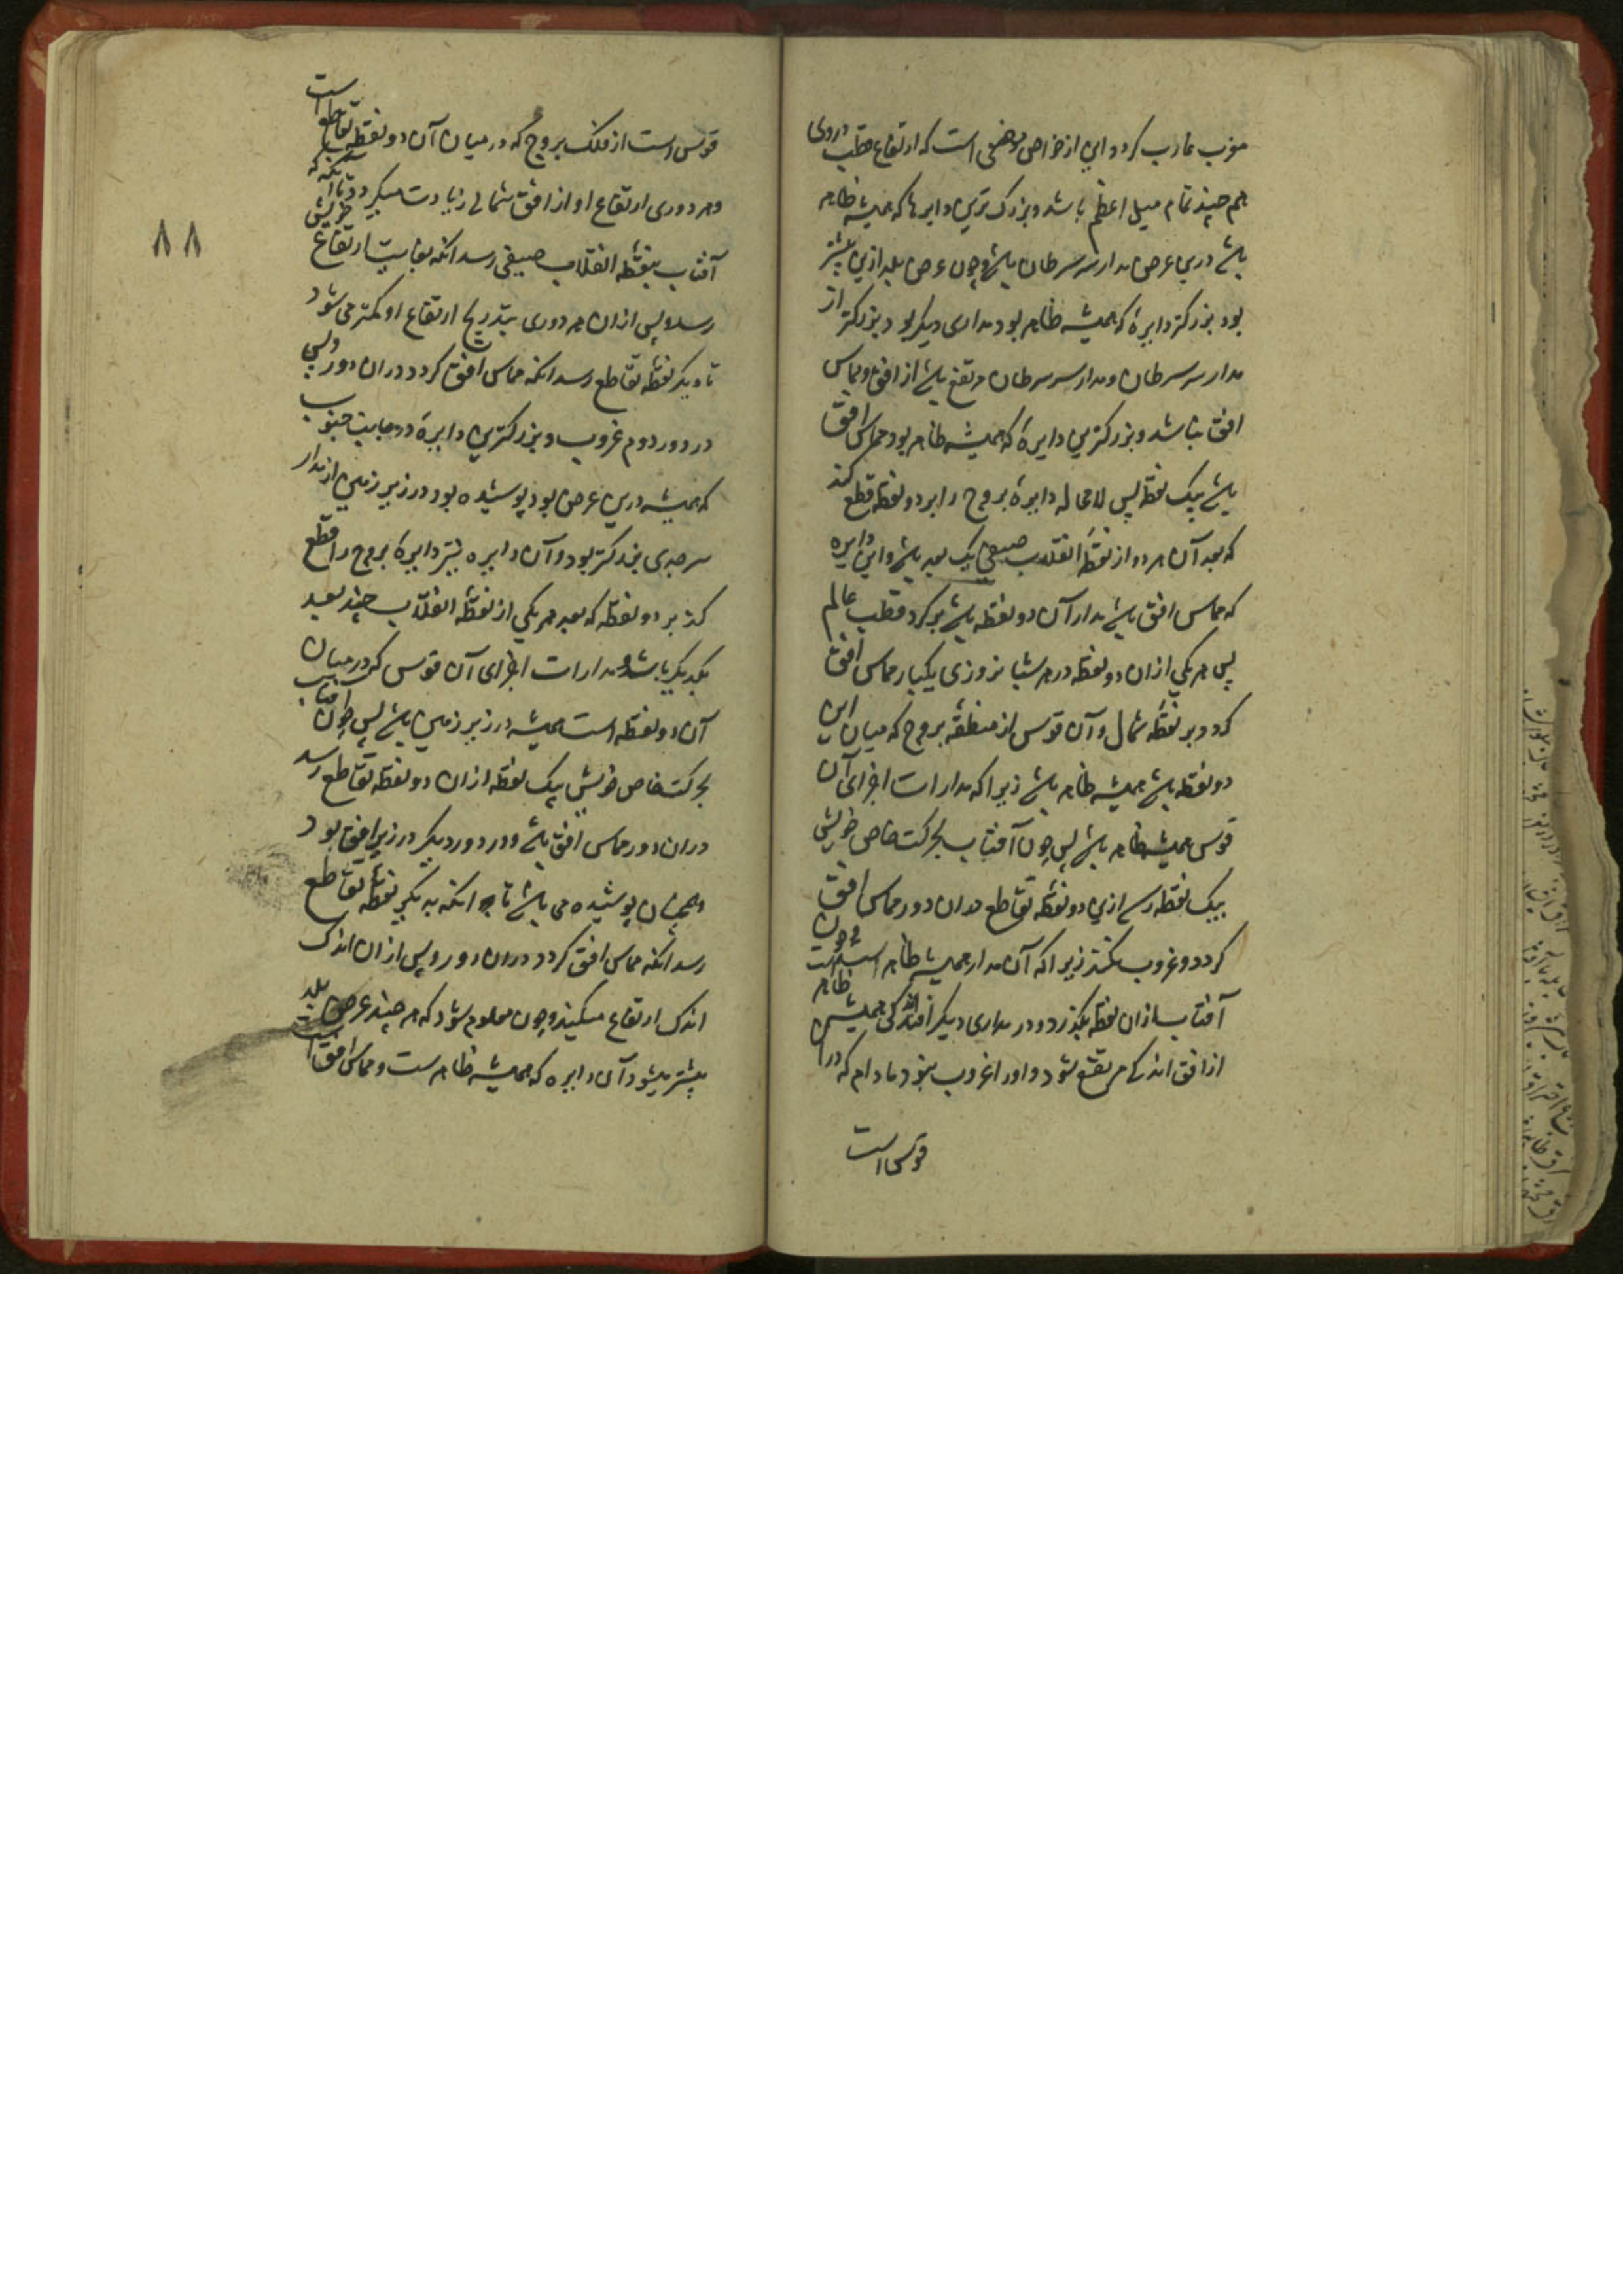 مغرب غارب کردد و این از خواص موضعی است که ارتفاع قطب دروی
هم چند تمام میل اعظم باشد و بزرک ترین دایرها که همیشه ظاهر
باشد درین عرض مدار سر سرطان باشد و چون عرض بلد ازین بیشتر
بود بزرکتر دایرهٔ که همیشه ظاهر بود مداری دیکر بود بزرکتر از
مدار سر سرطان و مدار سر سرطان مرتفع باشد از افق و مماس
افق نباشد و بزرکترین دایرهٔ که همیشه ظاهر بود مماس افق
باشد بیک نقطه پس لامحاله دایرهٔ بروج را بر دو نقطه قطع کند
که بعد آن هر دو از نقطهٔ انقلاب صیفی یک بعد باشد و این دایره
که مماس افق باشد مدار آن دو نقطه باشد بر کرد قطب عالم
پس هر یکی ازان دو نقطه در هر شبانروزی یکبار مماس افق
کردد بر نقطهٔ شمال و آن قوس از منطقه بروج که میان این
دو نقطه باشد همیشه ظاهر باشد زیرا که مدارات اجزای آن
قوس همیشه ظاهر باشد پس چون آفتاب بحرکت خاص خویش
بیک نقطه رسد ازین دو نقطه تقاطع دران دور مماس افق
کردد و غروب نکند زیرا که آن مدار همیشه ظاهر است و چون
آفتاب ازان نقطه بکذرد و در مداری دیکر افتد که همیشه ظاهر است
از افق اندکی مرتفع شود و اورا غروب نبود مادام که در آن
قوس است
۸۸
قوس است از فلک بروج که در میان آن دو نقطه تقاطع است
و هر دوری ارتفاع او از افق شمالی زیادت میکردد تا آنکه که
آفتاب بنقطه انقلاب صیفی رسد آنکه بغایت ارتفاع خویش
رسد و پس ازان هر دوری بتدریج ارتفاع او کمتر می شود
تا دیکر نقطه تقاطع رسد آنکه مماس افق کردد دران دور و پس
در دور دوم غروب و بزرکترین دایرهٔ در جانب جنوب
که همیشه درین عرض بود پوشیده بود در زیر زمین از مدار
سر جدی بزرکتر بود و آن دایره نیز دایرهٔ بروج را قطع
کند بر دو نقطه که بعد هر یکی از نقطه انقلاب چند بعد
یکدیکر باشد و مدارات اجزای آن قوس که در میان
آن دو نقطه است همیشه در زیر زمین باشد پس چون آفتاب
بحرکت خاص خویش بیک نقطه ازان دو نقطه تقاطع رسد
دران دور مماس افق باشد و در دور دیکر در زیر افق بود
و همچنان پوشیده می باشد تا آنکه بدیکر نقطه تقاطع
رسد آنکه مماس افق کردد دران دور و پس ازان اندک
اندک ارتفاع میکیرد و چون معلوم شود که هر چند عرض بلد
بیشتر میشود آن دایره که همیشه ظاهرست و مماس افق است